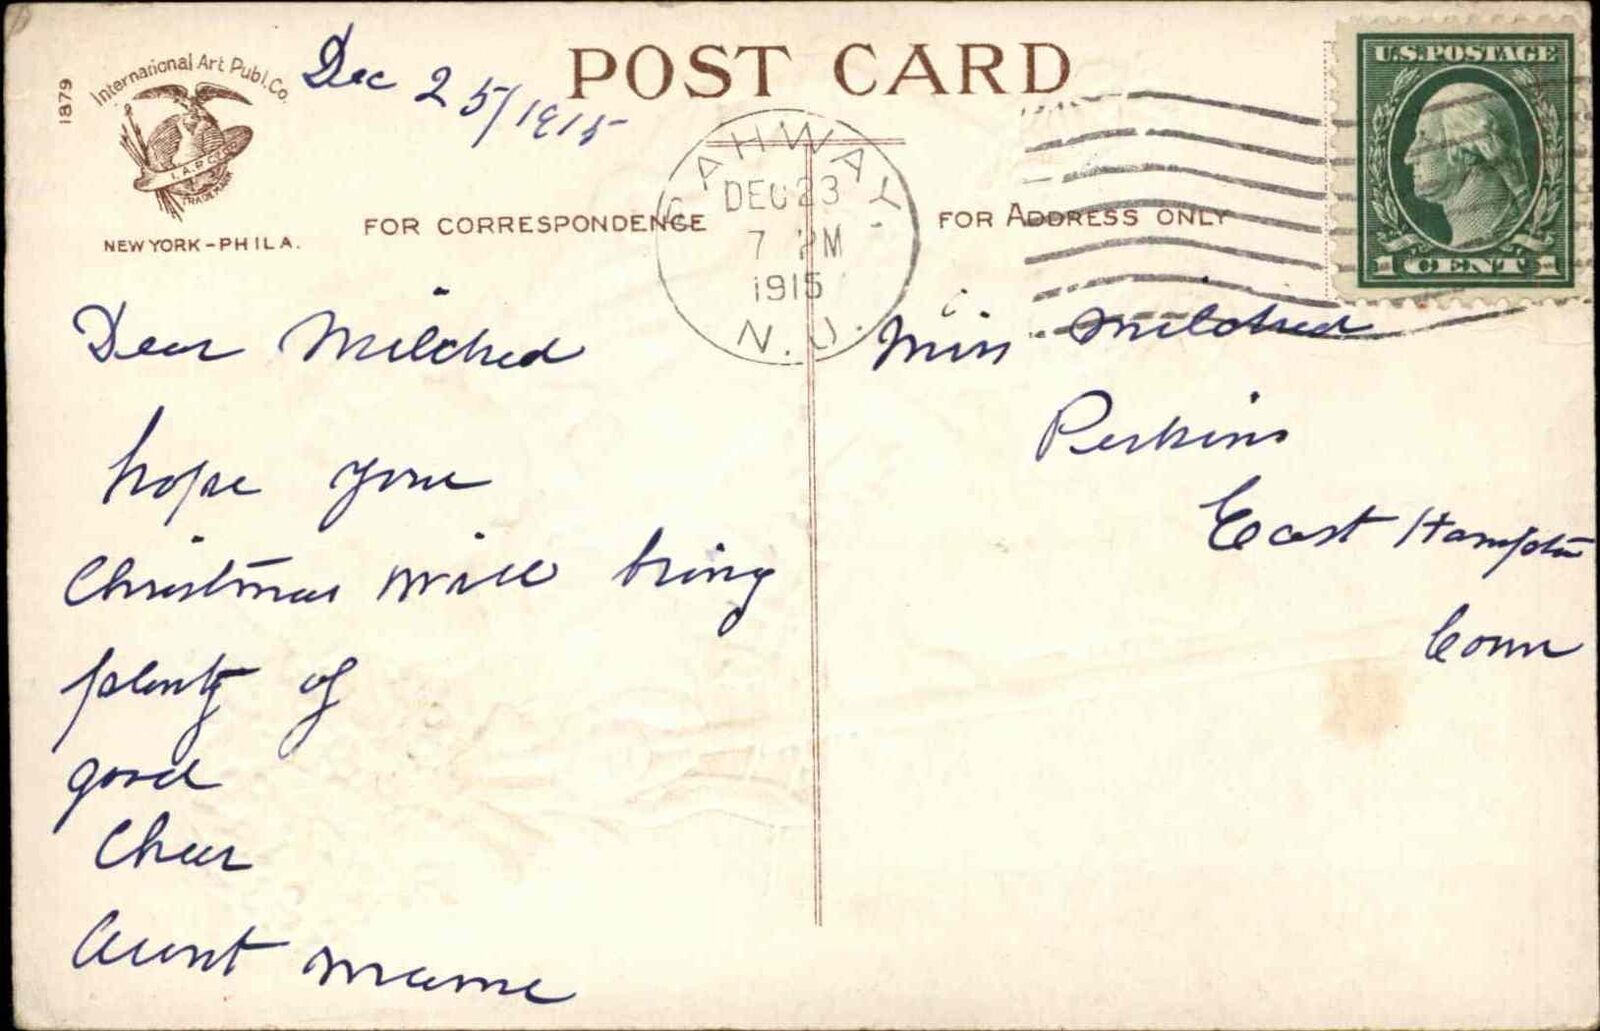 1879
International Art Publ. Co.
I.A.P.CO.
TRADEMARK
NEW YORK - PHILA.
Dec 25/1915
POST CARD
FOR CORRESPONDENCE
FOR ADDRESS ONLY
RAHWAY
DEC 23
7 PM
1915
N.J.
U.S. POSTAGE
1 CENT 1
Dear Mildred
hope your
Christmas will bring
plenty of
good
Cheer
Aunt Mame
Miss Mildred
Perkins
East Hampton
Conn